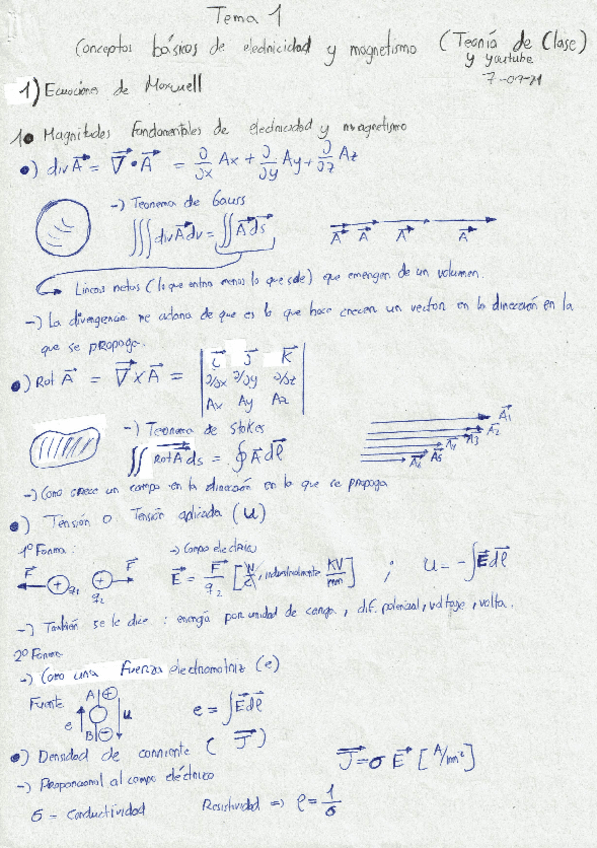 Tema 1
Conceptos básicos de electricidad y magnetismo (Teoría de Clase)
y youtube
7-07-21
1) Ecuaciones de Maxwell
1• Magnitudes fundamentales de electricidad y magnetismo
•) div A⃗ = ∇⃗ • A⃗ = ∂/∂x Ax + ∂/∂y Ay + ∂/∂z Az
-) Teorema de Gauss
∭ div A⃗ dv = ∬ A⃗ ds⃗
A⃗ A⃗ A⃗ A⃗
Lineas netas (lo que entra menos lo que sale) que emergen de un volumen.
-) La divergencia me da de que es lo que hace crecer un vector en la dirección en la
que se propaga.
•) Rot A⃗ = ∇⃗ x A⃗ = | i⃗ j⃗ K⃗ |
∂/∂x ∂/∂y ∂/∂z
Ax Ay Az
-) Teorema de Stokes
∬ Rot A⃗ ds = ∮ A⃗ dl⃗
A⃗1
A⃗2
A⃗3
A⃗4
A⃗5
-) Como crece un campo en la dirección en lo que se propaga
•) Tensión o Tensión aplicada (u)
1º Forma:
-) Campo electrico
F⃗ q1 q2 F⃗
E⃗ = F⃗/q2 [N/C, industrialmente KV/mm] ; u = -∫ E⃗ dl⃗
-) También se le dice: energía por unidad de carga, dif. potencial, voltage, volta.
2º Forma
-) Como una Fuerza electromotriz (e)
Fuente A + e u B -
e = ∫ E⃗ dl⃗
•) Densidad de corriente (J⃗)
J⃗ = σ E⃗ [A/mm²]
-) Proporcional al campo eléctrico
σ - Conductividad Resistividad => ρ = 1/σ